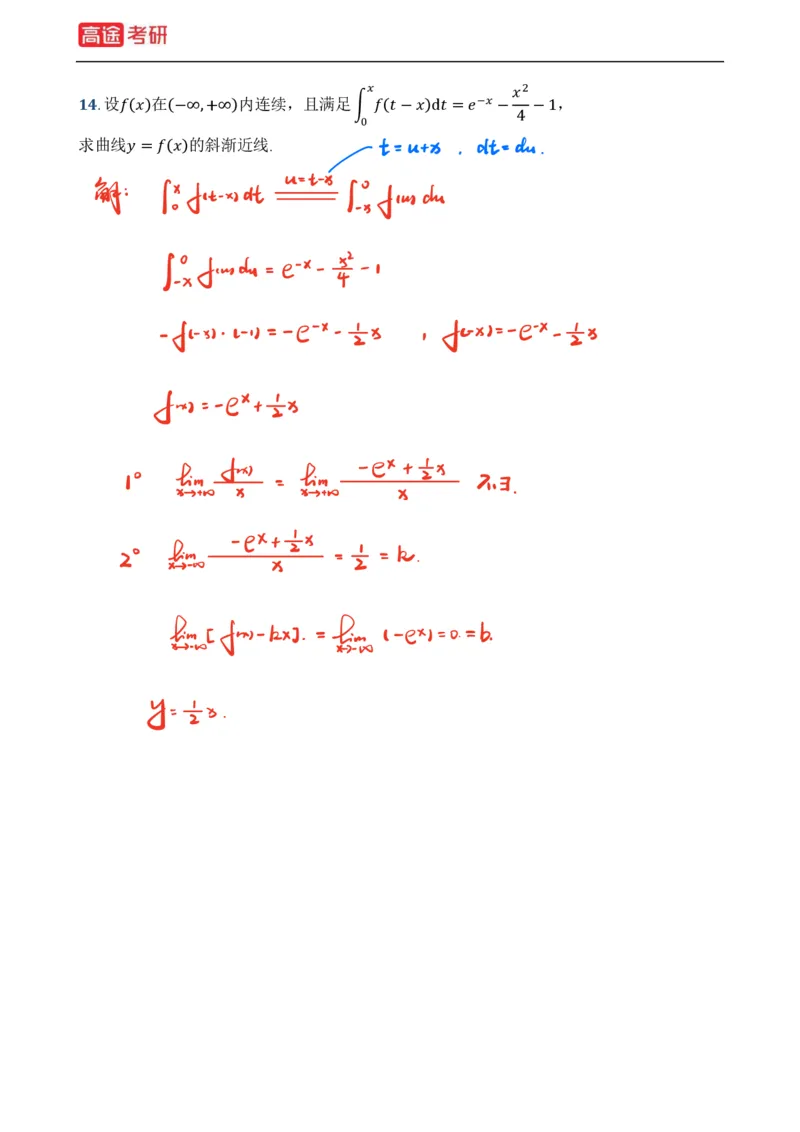 高途 考研
14. 设f(x)在(−∞,+∞)内连续，且满足∫₀ˣ f(t−x)dt = e⁻ˣ − x²/4 − 1，
求曲线y = f(x)的斜渐近线.
t = u+x . dt = du.
解: ∫₀ˣ f(t-x) dt ══ u=t-x ══ ∫₋ₓ⁰ f(u) du
∫₋ₓ⁰ f(u) du = e⁻ˣ - x²/4 - 1
-f(-x)·(-1) = -e⁻ˣ - 1/2 x , f(-x) = -e⁻ˣ - 1/2 x
f(x) = -eˣ + 1/2 x
1° lim x→+∞ f(x)/x = lim x→+∞ (-eˣ + 1/2 x)/x 不∃.
2° lim x→-∞ (-eˣ + 1/2 x)/x = 1/2 = k.
lim x→-∞ [f(x)-kx]. = lim x→-∞ (-eˣ) = 0. = b.
y = 1/2 x.